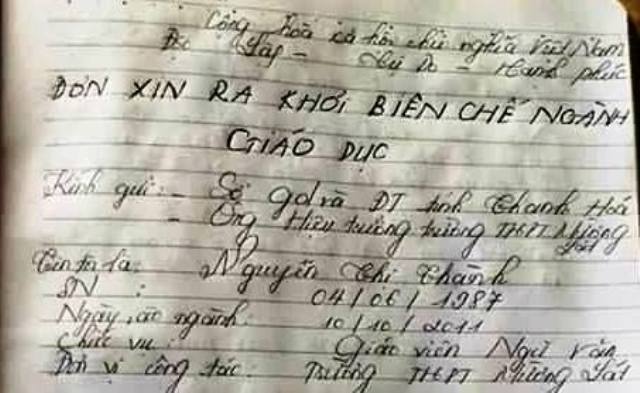 Cộng hoà xã hội chủ nghĩa Việt Nam
Độc lập - Tự Do - Hạnh phúc
ĐƠN XIN RA KHỎI BIÊN CHẾ NGÀNH
GIÁO DỤC
Kính gửi: - Sở gd và ĐT tỉnh Thanh Hoá
- Ông Hiệu trưởng trường THPT Mường Lát
Tên ta là: Nguyễn Thị Thành
SN : 04/06/1987
Ngày vào ngành: 10/10/2011
Chức vụ : Giáo viên Ngữ văn
Đơn vị công tác: Trường THPT Mường Lát